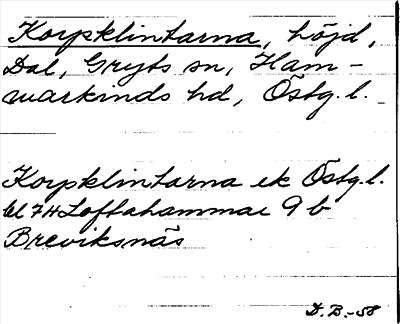 Korpklintarna, höjd,
Dal, Gryts sn, Ham-
markinds hd, Östg. l.
Korpklintarna ek Östg. l.
bl 7H Loftahammar 9 b
Breviksnäs
D. B. -58